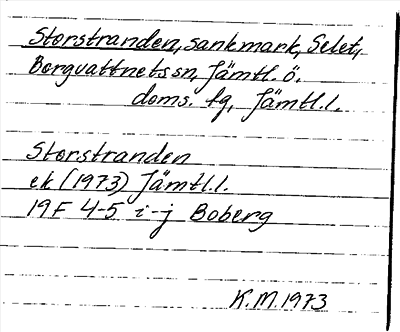 Storstranden, sankmark, Selet,
Borgvattnets sn, Jämtl. ö.
doms. tg, Jämtl. l.
Storstranden
ek (1973) Jämtl. l.
19F 4-5 i-j Boberg
K.M. 1973